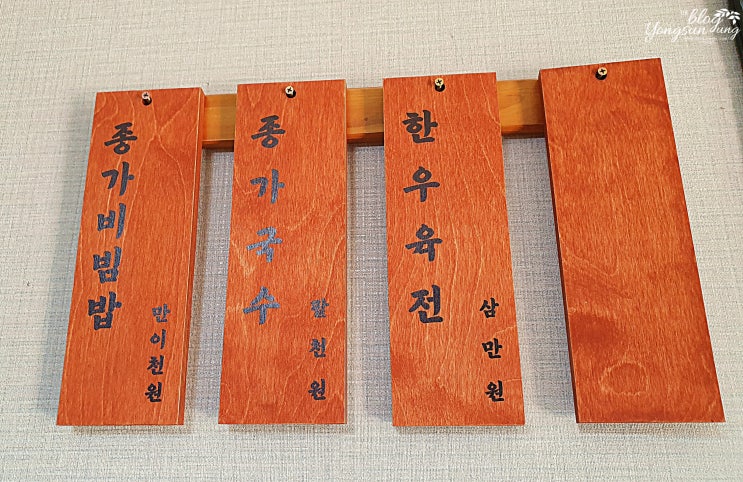 종가비빔밥
만이천원
종가국수
팔천원
한우육전
삼만원
The blog
Yongsun Jung